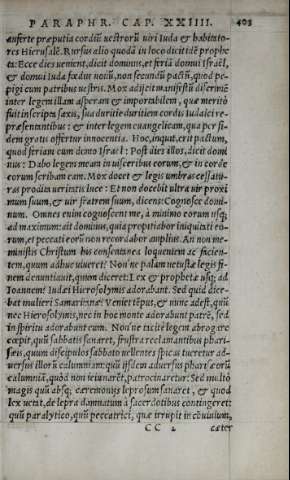 PARAPHR. CAP. XXIIII. 403
auferte præputia cordiũ uestrorũ uiri Iuda & habitato-
res Hierusalẽ. Rursus alio quodã in loco dicit idẽ prophe
ta: Ecce dies uenient, dicit dominus, et feriã domui Israël,
& domui Iuda fœdus nouũ, non secundũ pactũ, quod pe-
pigi cum patribus uestris. Mox adijcit manifestũ discrimẽ
inter legem illam asperam & importabilem, quæ meritò
fuit inscripta saxis, sua duritie duritiem cordis Iudaici re-
præsentantibus: & inter legem euangelicam, qua per fi-
dem gratis offertur innocentia. Hoc, inquit, erit pactum,
quod feriam cum domo Israël: Post dies illos, dicit domi
nus: Dabo legem meam in uisceribus eorum, & in corde
eorum scribam eam. Mox docet & legis umbras cessatu-
ras prodita ueritatis luce: Et non docebit ultra uir proxi
mum suum, & uir fratrem suum, dicens: Cognosce domi-
num. Omnes enim cognoscent me, à minimo eorum usq;
ad maximum: ait dominus, quia propitiabor iniquitati eo-
rum, et peccati eorũ non recordabor amplius. An non me-
ministis Christum his consentanea loquentem ac facien-
tem, quum adhuc uiueret? Non'ne palam uetustæ legis fi-
nem denuntiauit, quum diceret: Lex & prophetæ usq; ad
Ioannem? Iudæi Hierosolymis adorabant. Sed quid dice-
bat mulieri Samaritanæ? Veniet tẽpus, & nunc adest, quũ
nec Hierosolymis, nec in hoc monte adorabunt patrẽ, sed
in spiritu adorabunt eum. Non'ne tacitè legem abrogare
cœpit, quũ sabbatis sanaret, frustra reclamantibus phari-
sæis, quum discipulos sabbato uellentes spicas tueretur ad-
uersus illorũ calumniam: quũ ijsdem aduersus pharisæorũ
calumniã, quòd non ieiunarẽt, patrocinaretur: Sed multò
magis quũ absq; cæremonijs leprosum sanaret, & quod
lex uetat, de lepra damnatum à sacerdotibus contingeret:
quũ paralytico, quũ peccatrici, quæ irrupit in cõuiuium,
CC 2 cæter